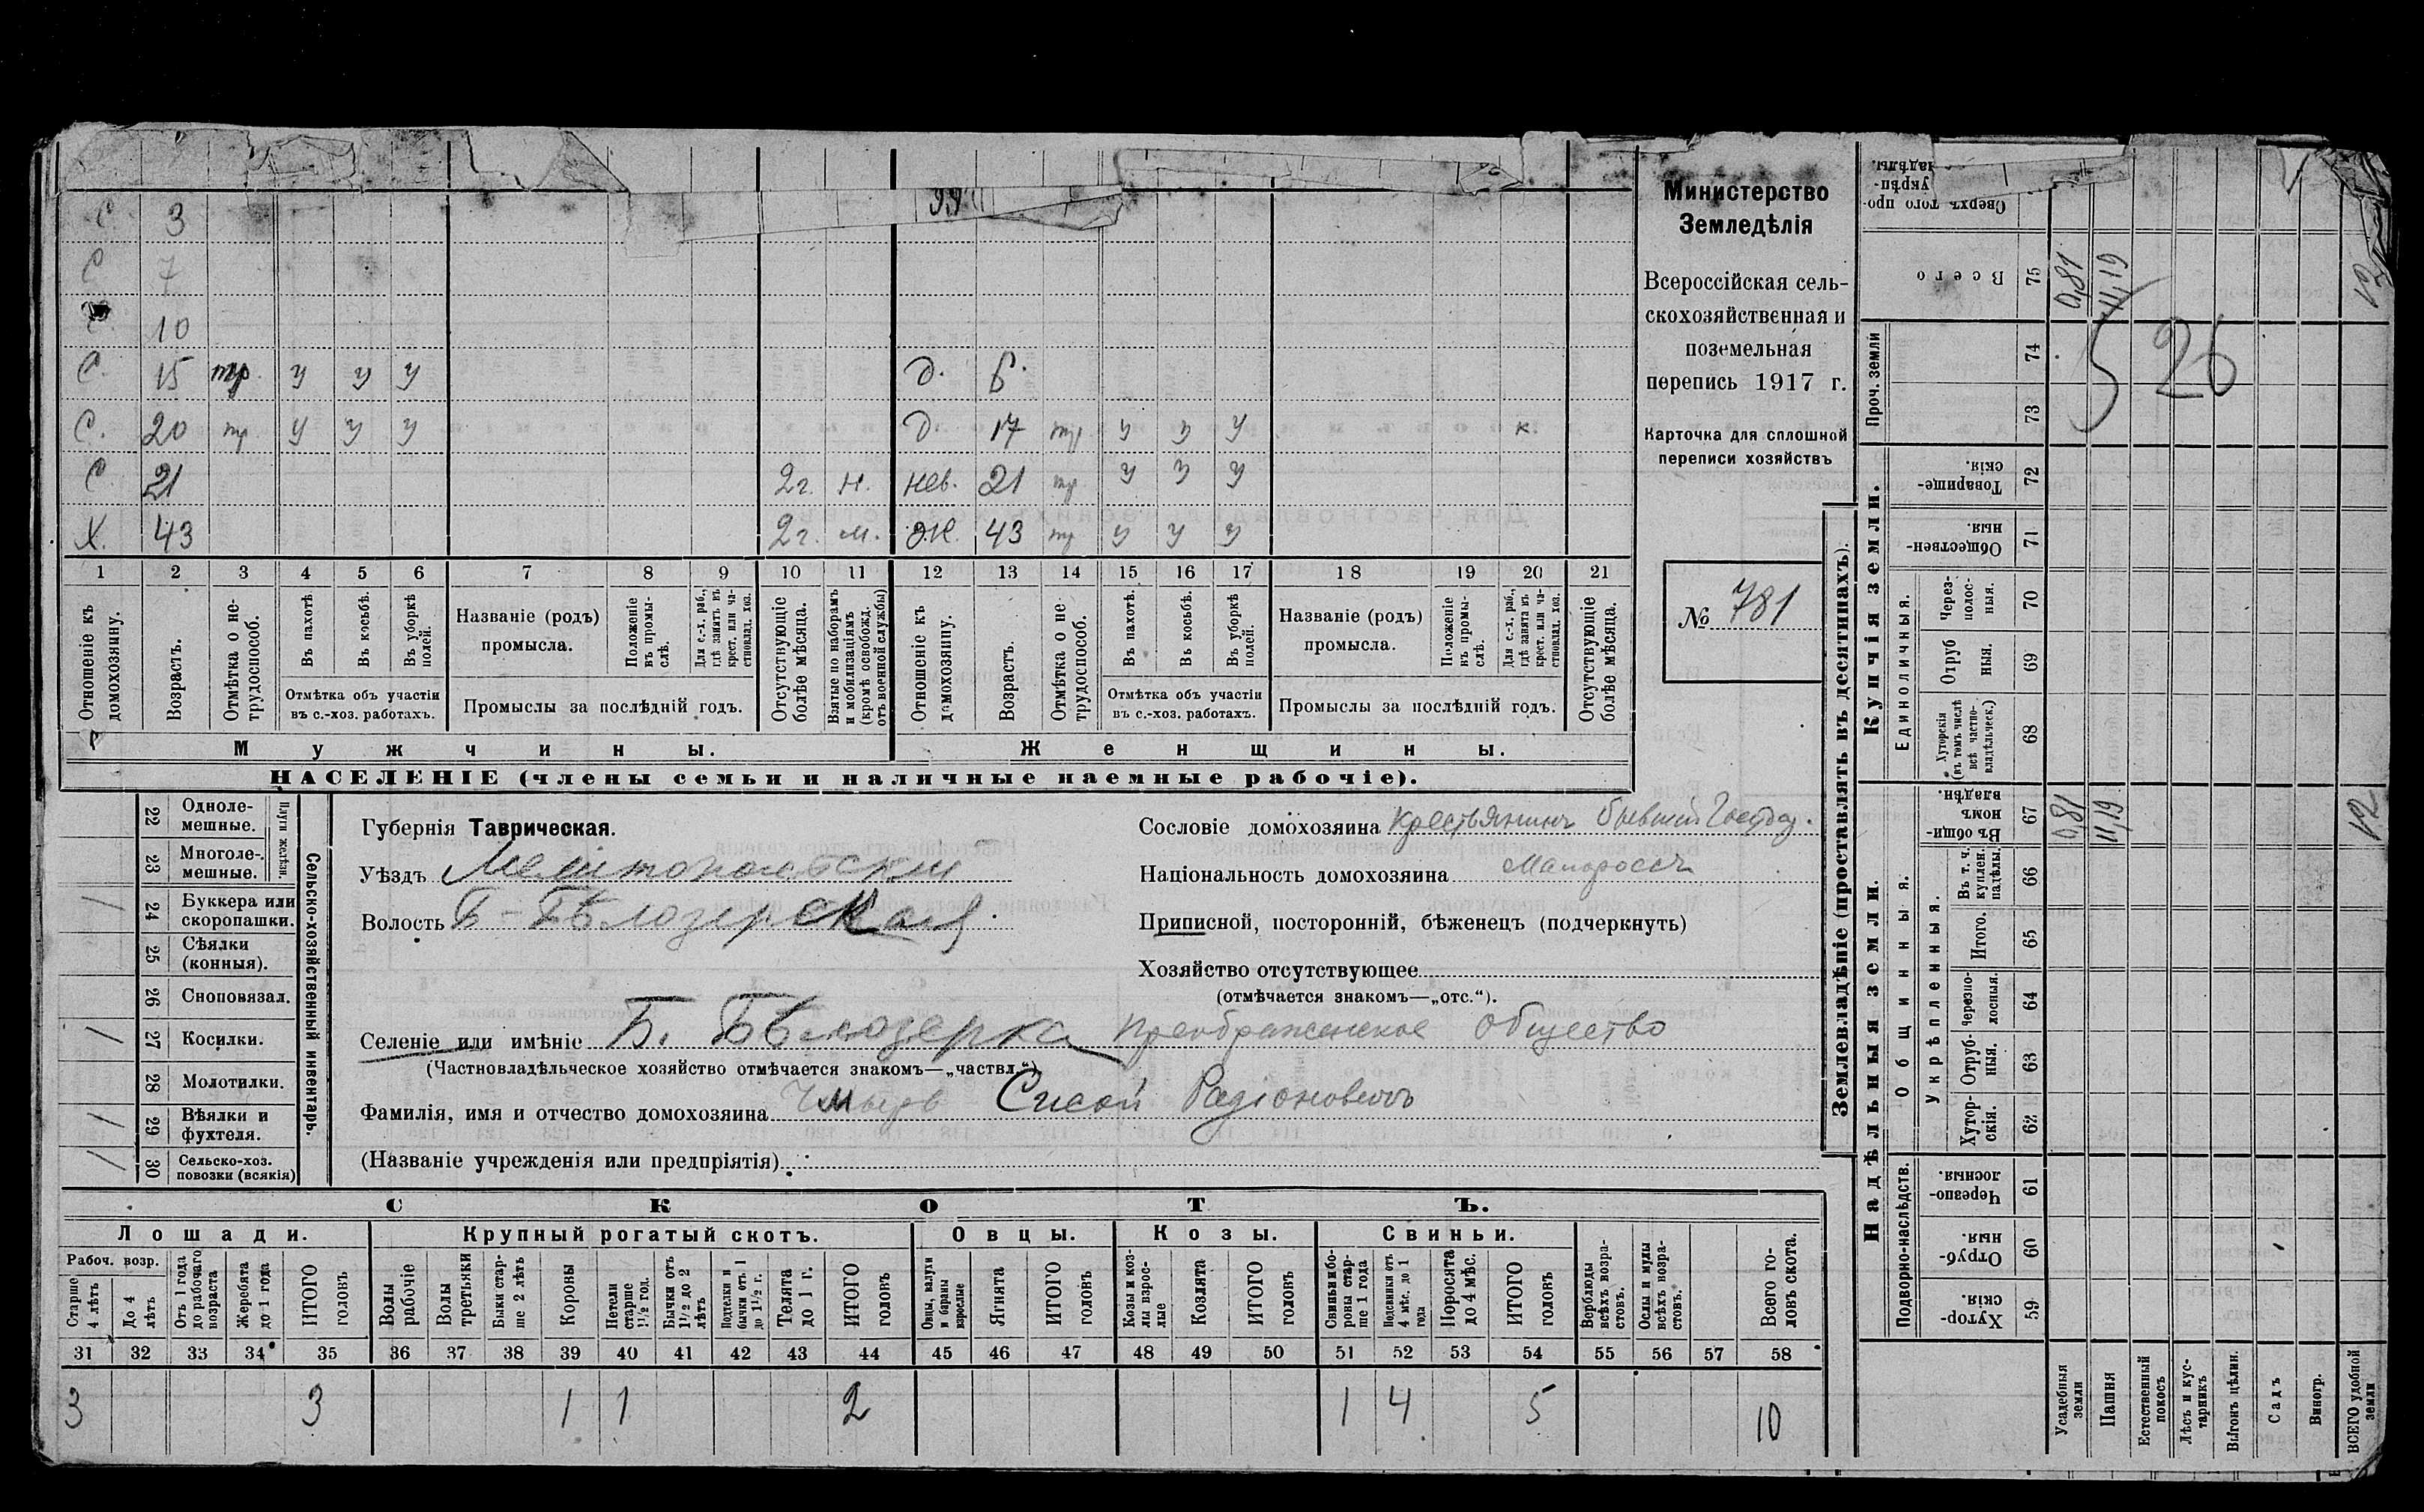 С 3
С 7
С. 10
С. 15 тр. у у у д. 6.
С. 20 тр. у у у д 17 тр. у у у к.
С 21 2 г. н. нев. 21 тр. у у у
Х. 43 2 г. м. ж. 43 тр у у у
1 2 3 4 5 6 7 8 9 10 11 12 13 14 15 16 17 18 19 20 21
Отношеніе къ домохозяину.
Возрастъ.
Отмѣтка о не-трудоспособ.
Въ пахотѣ
Въ косьбѣ.
Въ уборкѣ полей.
Отмѣтка объ участіи
въ с.-хоз. работахъ.
Названіе (родъ)
промысла.
Положеніе въ промы-слѣ.
Для с.-х. раб., гдѣ занятъ въ крест. или ча-стновлад. хоз.
Промыслы за послѣдній годъ.
Отсутствующіе болѣе мѣсяца.
Взятые по наборамъ и мобилизаціямъ (кромѣ освобожд. отъ военной службы)
Отношеніе къ домохозяину.
Возрастъ.
Отмѣтка о не трудоспособ.
Въ пахотѣ.
Въ косьбѣ.
Въ уборкѣ полей.
Отмѣтка объ участіи
въ с.-хоз. работахъ.
Названіе (родъ)
промысла.
Положеніе въ промы-слѣ.
Для с.-х. раб., гдѣ занята въ крест. или ча-стновлад. хоз.
Промыслы за послѣдній годъ.
Отсутствующіе болѣе мѣсяца.
Мужчины.
Женщины.
НАСЕЛЕНІЕ (члены семьи и наличные наемные рабочіе).
Министерство
Земледѣлія
Всероссійская сель-
скохозяйственная и
поземельная
перепись 1917 г.
Карточка для сплошной
переписи хозяйствъ
№ 781
Сельско-хозяйственный инвентарь.
Плуги желѣзн.
22 Одноле-
мешные.
23 Многоле-
мешные.
/ 24 Буккера или
скоропашки.
25 Сѣялки
(конныя).
26 Сноповязал.
/ 27 Косилки.
28 Молотилки.
/ 29 Вѣялки и
фухтеля.
/ 30 Сельско-хоз.
повозки (всякія)
Губернія Таврическая.
Уѣздъ Мелитопольскій
Волость Б-Бѣлозерская
Сословіе домохозяина Крестьянинъ бывший Госуд.
Національность домохозяина Малороссъ
Приписной, посторонній, бѣженецъ (подчеркнуть)
Хозяйство отсутствующее
(отмѣчается знакомъ—„отс.“).
Селеніе или имѣніе Б. Бѣлозерка Преображенское Общество
(Частновладѣльческое хозяйство отмѣчается знакомъ—„частвл.“)
Фамилія, имя и отчество домохозяина Сисой Радіоновичъ
(Названіе учрежденія или предпріятія)
СКОТЪ.
Лошади. Крупный рогатый скотъ. Овцы. Козы. Свиньи.
Рабоч. возр.
Старше 4 лѣтъ
До 4 лѣтъ
Отъ 1 года до рабочаго возраста
Жеребята до 1 года
ИТОГО головъ
Волы рабочіе
Волы третьяки
Быки стар-ше 2 лѣтъ
Коровы
Нетели старше 1½ год.
Бычки отъ 1½ до 2 лѣтъ
Подтелки и бычки отъ 1 до 1½ г.
Телята до 1 г.
ИТОГО головъ
Овцы, валухи и бараны взрослые
Ягнята
ИТОГО головъ
Козы и коз-лы взрос-лые
Козлята
ИТОГО головъ
Свиньи и бо-ровы стар-ше 1 года
Подсвинки отъ 4 мѣс. до 1 года
Поросята до 4 мѣс.
ИТОГО головъ
Верблюды всѣхъ возра-стовъ.
Ослы и мулы всѣхъ возра-стовъ.
Всего го-ловъ скота.
31 32 33 34 35 36 37 38 39 40 41 42 43 44 45 46 47 48 49 50 51 52 53 54 55 56 57 58
3 3 1 1 2 1 4 5 10
Землевладѣніе (проставлять въ десятинахъ).
Сверхъ того про-
укрѣп-
надѣлы.
Всего 75 0,81 11,19 12
Проч. земли
74
73
5 26
Купчія земли.
Товарище-
скія. 72
Обществен-
ныя. 71
Единоличныя.
Через-
полос-
ныя. 70
Отруб
ныя. 69
Хуторскія
(въ томъ числѣ
всѣ частно-
владѣльческ.) 68
Надѣльныя земли.
Общинныя.
Въ общи-
номъ
владѣн. 67 0,81 11,19 12
Укрѣпленныя.
Въ т. ч.
куплен.
надѣлы. 66
Итого. 65
Черезпо-
лосныя. 64
Отруб-
ныя. 63
Хутор-
скія. 62
Подворно-наслѣдств.
Черезпо-
лосныя 61
Отруб-
ныя. 60
Хутор-
скія. 59
Усадебныя земли
Пашня
Естественный покосъ
Лѣсъ и кус-тарникъ
Выгонъ цѣлин.
Садъ
Виногр.
ВСЕГО удобной земли